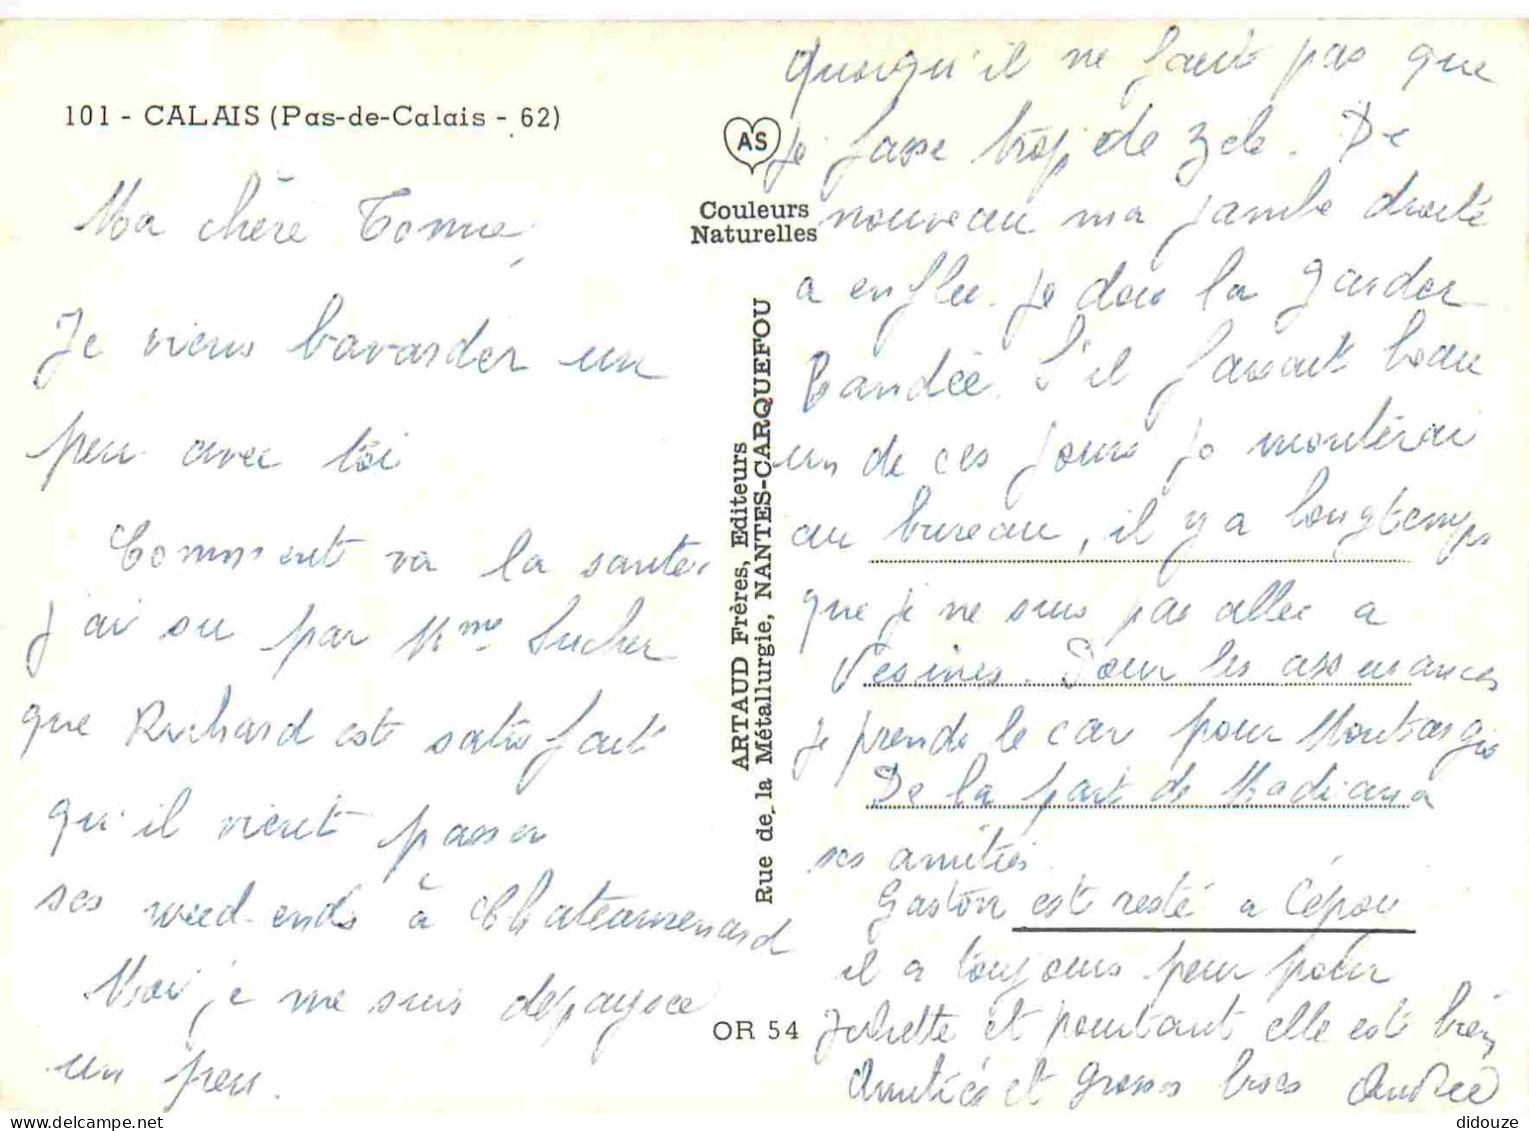 101 - CALAIS (Pas-de-Calais - 62)
Ma chère Tonnie,
Je viens bavarder un
peu avec toi
Comment va la santé.
J'ai su par Mme Sucher
que Richard est satisfait
qu'il vient passer
ses weed-ends à Chateaurenard
Moi je me suis dépaysée
un peu.
AS
Couleurs
Naturelles
ARTAUD Frères, Editeurs
Rue de la Métallurgie, NANTES-CARQUEFOU
OR 54
Quoiqu'il ne faut pas que
je fasse trop de zele. De
nouveau ma jambe droite
a enflée. je dois la garder
Bandée. S'il faisait beau
un de ces jours je monterai
au bureau, il y a longtemps
que je ne suis pas allée a
Vesines. Pour les assurances
je prends le car pour Montargis
De la part de
ses amitiés.
Gaston est resté a Cépoy
il a toujours peur pour
Juliette et pourtant elle est bien
Amitiés et grosses bises Andrée
didouze